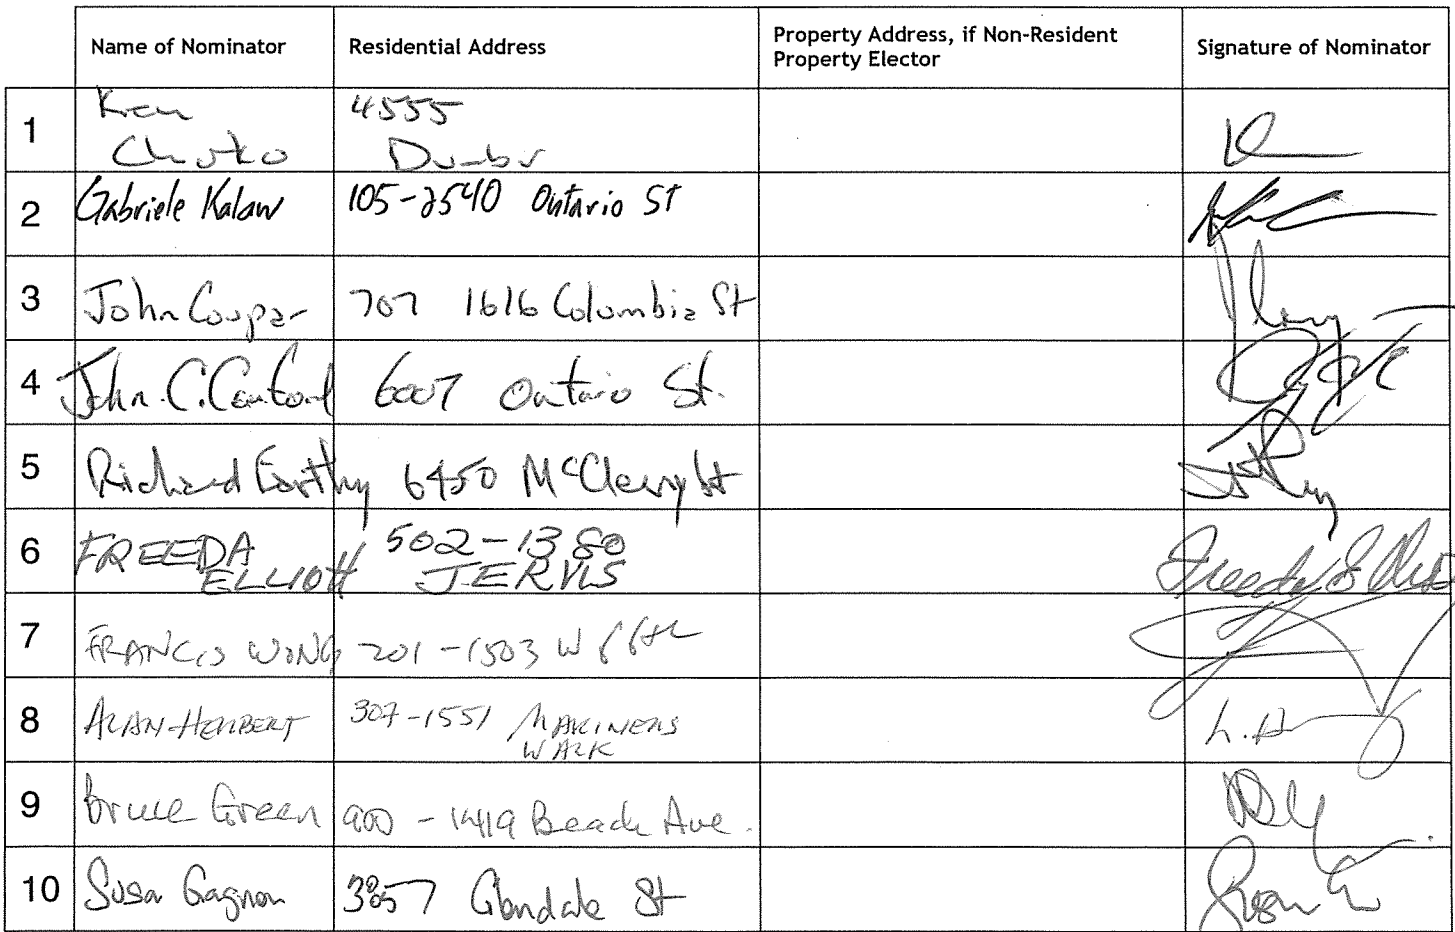 Name of Nominator Residential Address Property Address, if Non-Resident Property Elector Signature of Nominator
1 Ken 4555
Dunbar
2 Gabriele Kalaw 105-2540 Ontario St
3 John Coupar 707 1616 Columbia St
4 John C. 6007 Ontario St.
5 Richard Earthy 6450 McCleery St
6 FREEDA 502-1380
ELLIOTT JERVIS
Freeda Elliott
7 FRANCIS WONG 201-1503 W 66th
8 ALAN HERBERT 307-1551 MARINERS
WALK
9 Bruce Green 900 - 1419 Beach Ave.
10 Susan Gagnon 3857 Glendale St